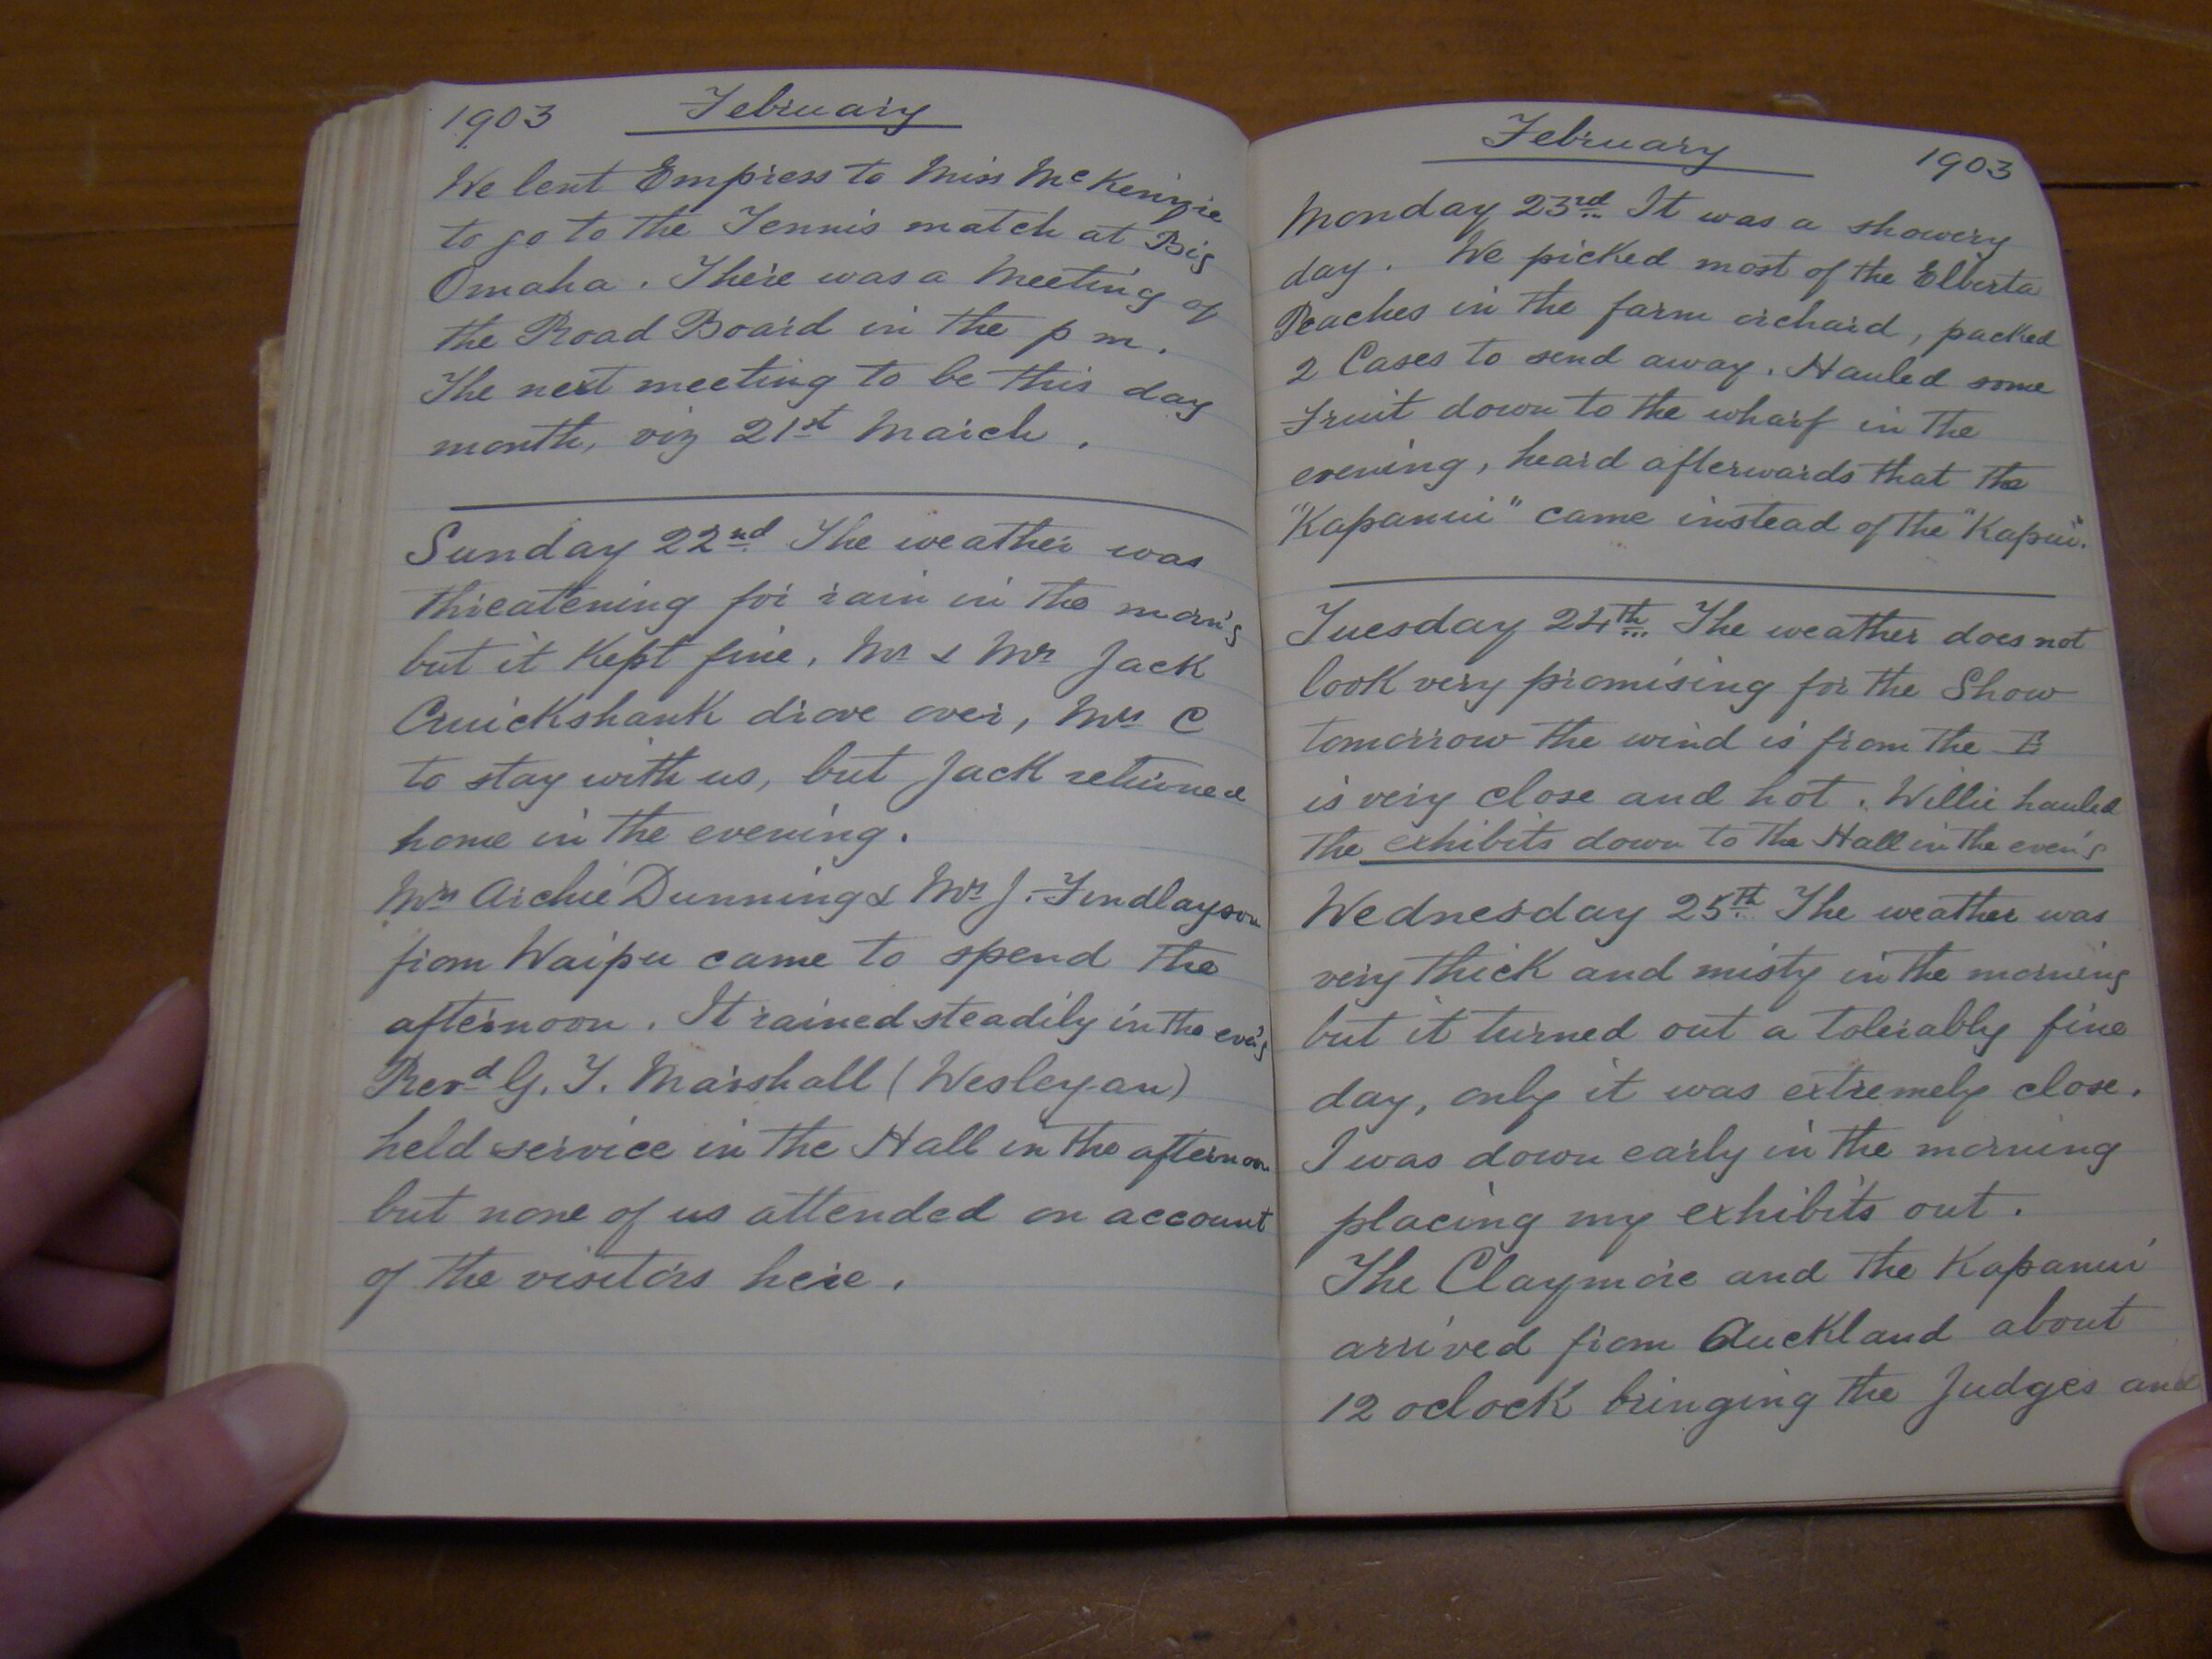 1903 February
We lent Empress to Miss McKenzie
to go to the Tennis match at Big
Omaha. There was a Meeting of
the Road Board in the p m.
The next meeting to be this day
month, viz 21st March.
Sunday 22nd The weather was
threatening for rain in the morn'g
but it kept fine, Mr & Mrs Jack
Cruickshank drove over, Mrs C
to stay with us, but Jack returned
home in the evening.
Mrs Archie Dunning & Mrs J. Findlayson
from Waipu came to spend the
afternoon. It rained steadily in the eve'g
Revd G. T. Marshall (Wesleyan)
held service in the Hall in the afternoon
but none of us attended on account
of the visitors here.
February 1903
Monday 23rd It was a showery
day. We picked most of the Elberta
Peaches in the farm orchard, packed
2 Cases to send away. Hauled some
Fruit down to the wharf in the
evening, heard afterwards that the
"Kapanui" came instead of the "Kapui".
Tuesday 24th The weather does not
look very promising for the Show
tomorrow the wind is from the E
is very close and hot. Willie hauled
the exhibits down to the Hall in the even'g
Wednesday 25th The weather was
very thick and misty in the morning
but it turned out a tolerably fine
day, only it was extremely close.
I was down early in the morning
placing my exhibits out.
The Claymore and the Kapanui
arrived from Auckland about
12 oclock bringing the Judges and